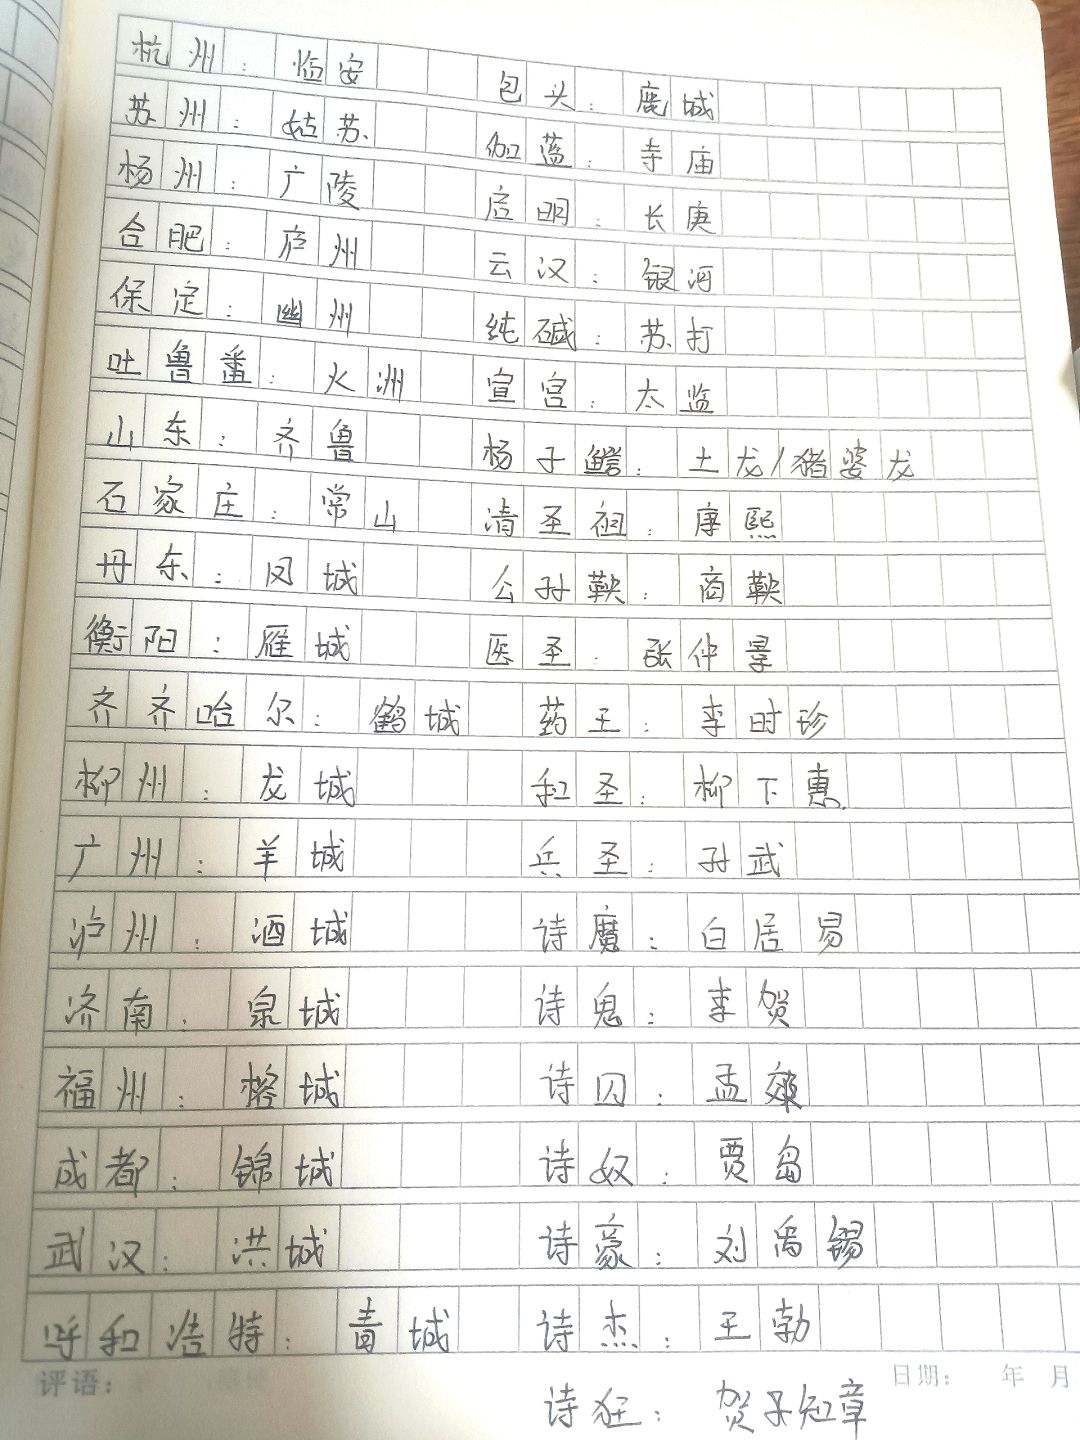 杭州：临安 包头：鹿城
苏州：姑苏 伽蓝：寺庙
杨州：广陵 启明：长庚
合肥：庐州 云汉：银河
保定：幽州 纯碱：苏打
吐鲁番：火洲 宣宫：太监
山东：齐鲁 杨子鳄：土龙/猪婆龙
石家庄：常山 清圣祖：康熙
丹东：凤城 公孙鞅：商鞅
衡阳：雁城 医圣：张仲景
齐齐哈尔：鹤城 药王：李时珍
柳州：龙城 和圣：柳下惠
广州：羊城 兵圣：孙武
泸州：酒城 诗魔：白居易
济南：泉城 诗鬼：李贺
福州：榕城 诗囚：孟郊
成都：锦城 诗奴：贾岛
武汉：洪城 诗豪：刘禹锡
呼和浩特：青城 诗杰：王勃
评语： 日期： 年 月
诗狂：贺子知章